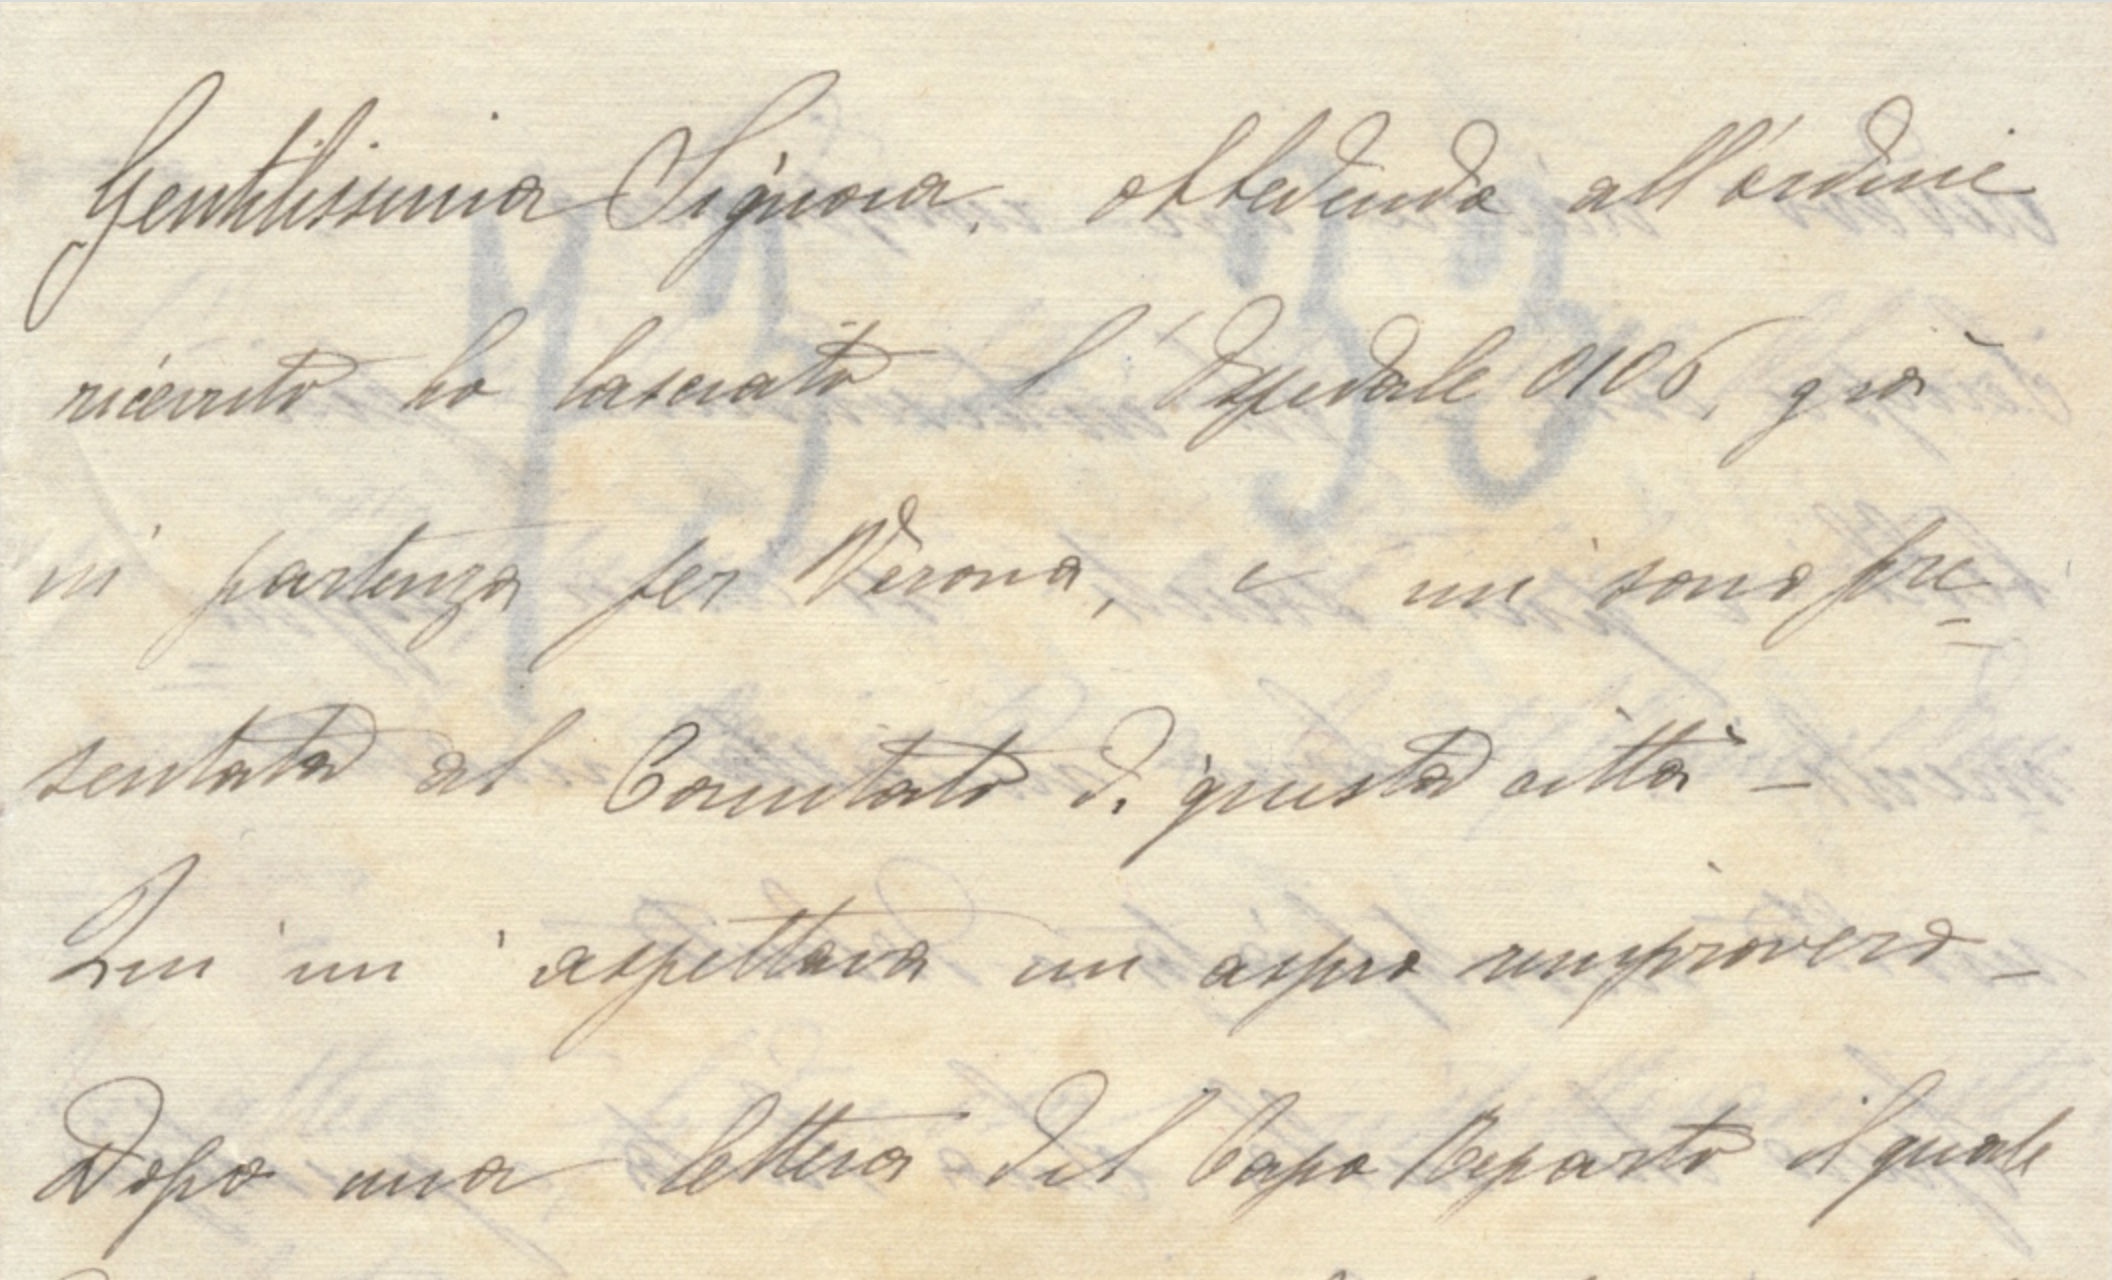 Gentilissima Signora, obbedendo all'ordine
ricevuto ho lasciato l'Ospedale 0106, già
in partenza per Verona, e mi sono pre=
sentata al Comitato di questa città -
Qui m'aspettava un aspro rimprovero -
Dopo una lettera del Capo Reparto il quale